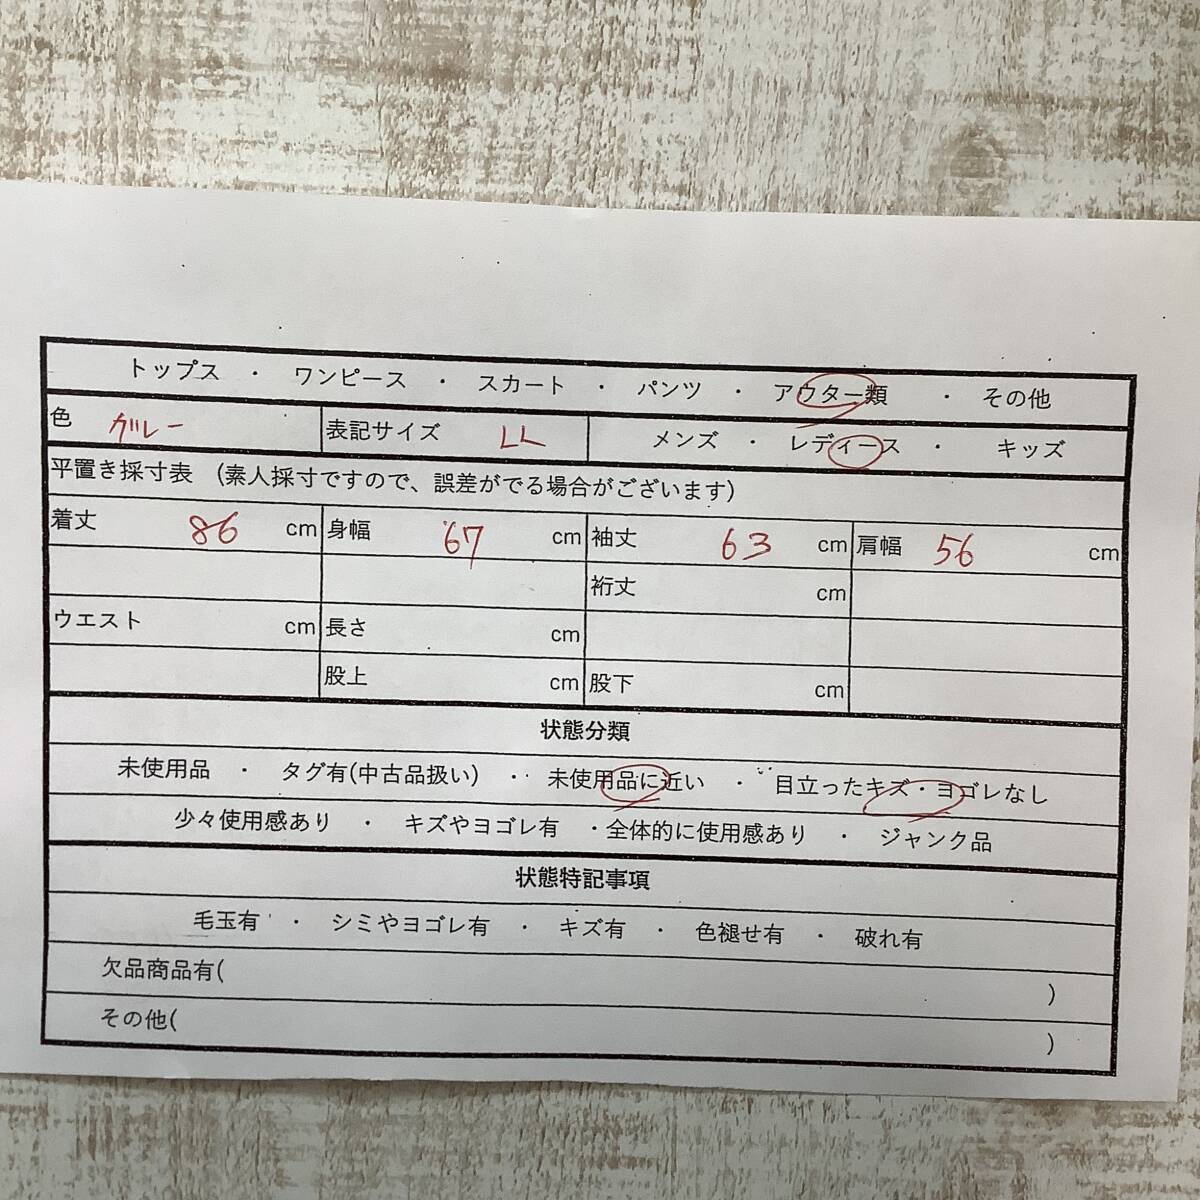 トップス ・ ワンピース ・ スカート ・ パンツ ・ アウター類 ・ その他
色 グレー 表記サイズ LL メンズ ・ レディース ・ キッズ
平置き採寸表 (素人採寸ですので、誤差がでる場合がございます)
着丈 86 cm 身幅 67 cm 袖丈 63 cm 肩幅 56 cm
裄丈 cm
ウエスト cm 長さ cm
股上 cm 股下 cm
状態分類
未使用品 ・ タグ有(中古品扱い) ・ 未使用品に近い ・ 目立ったキズ・ヨゴレなし
少々使用感あり ・ キズやヨゴレ有 ・全体的に使用感あり ・ ジャンク品
状態特記事項
毛玉有 ・ シミやヨゴレ有 ・ キズ有 ・ 色褪せ有 ・ 破れ有
欠品商品有( )
その他( )